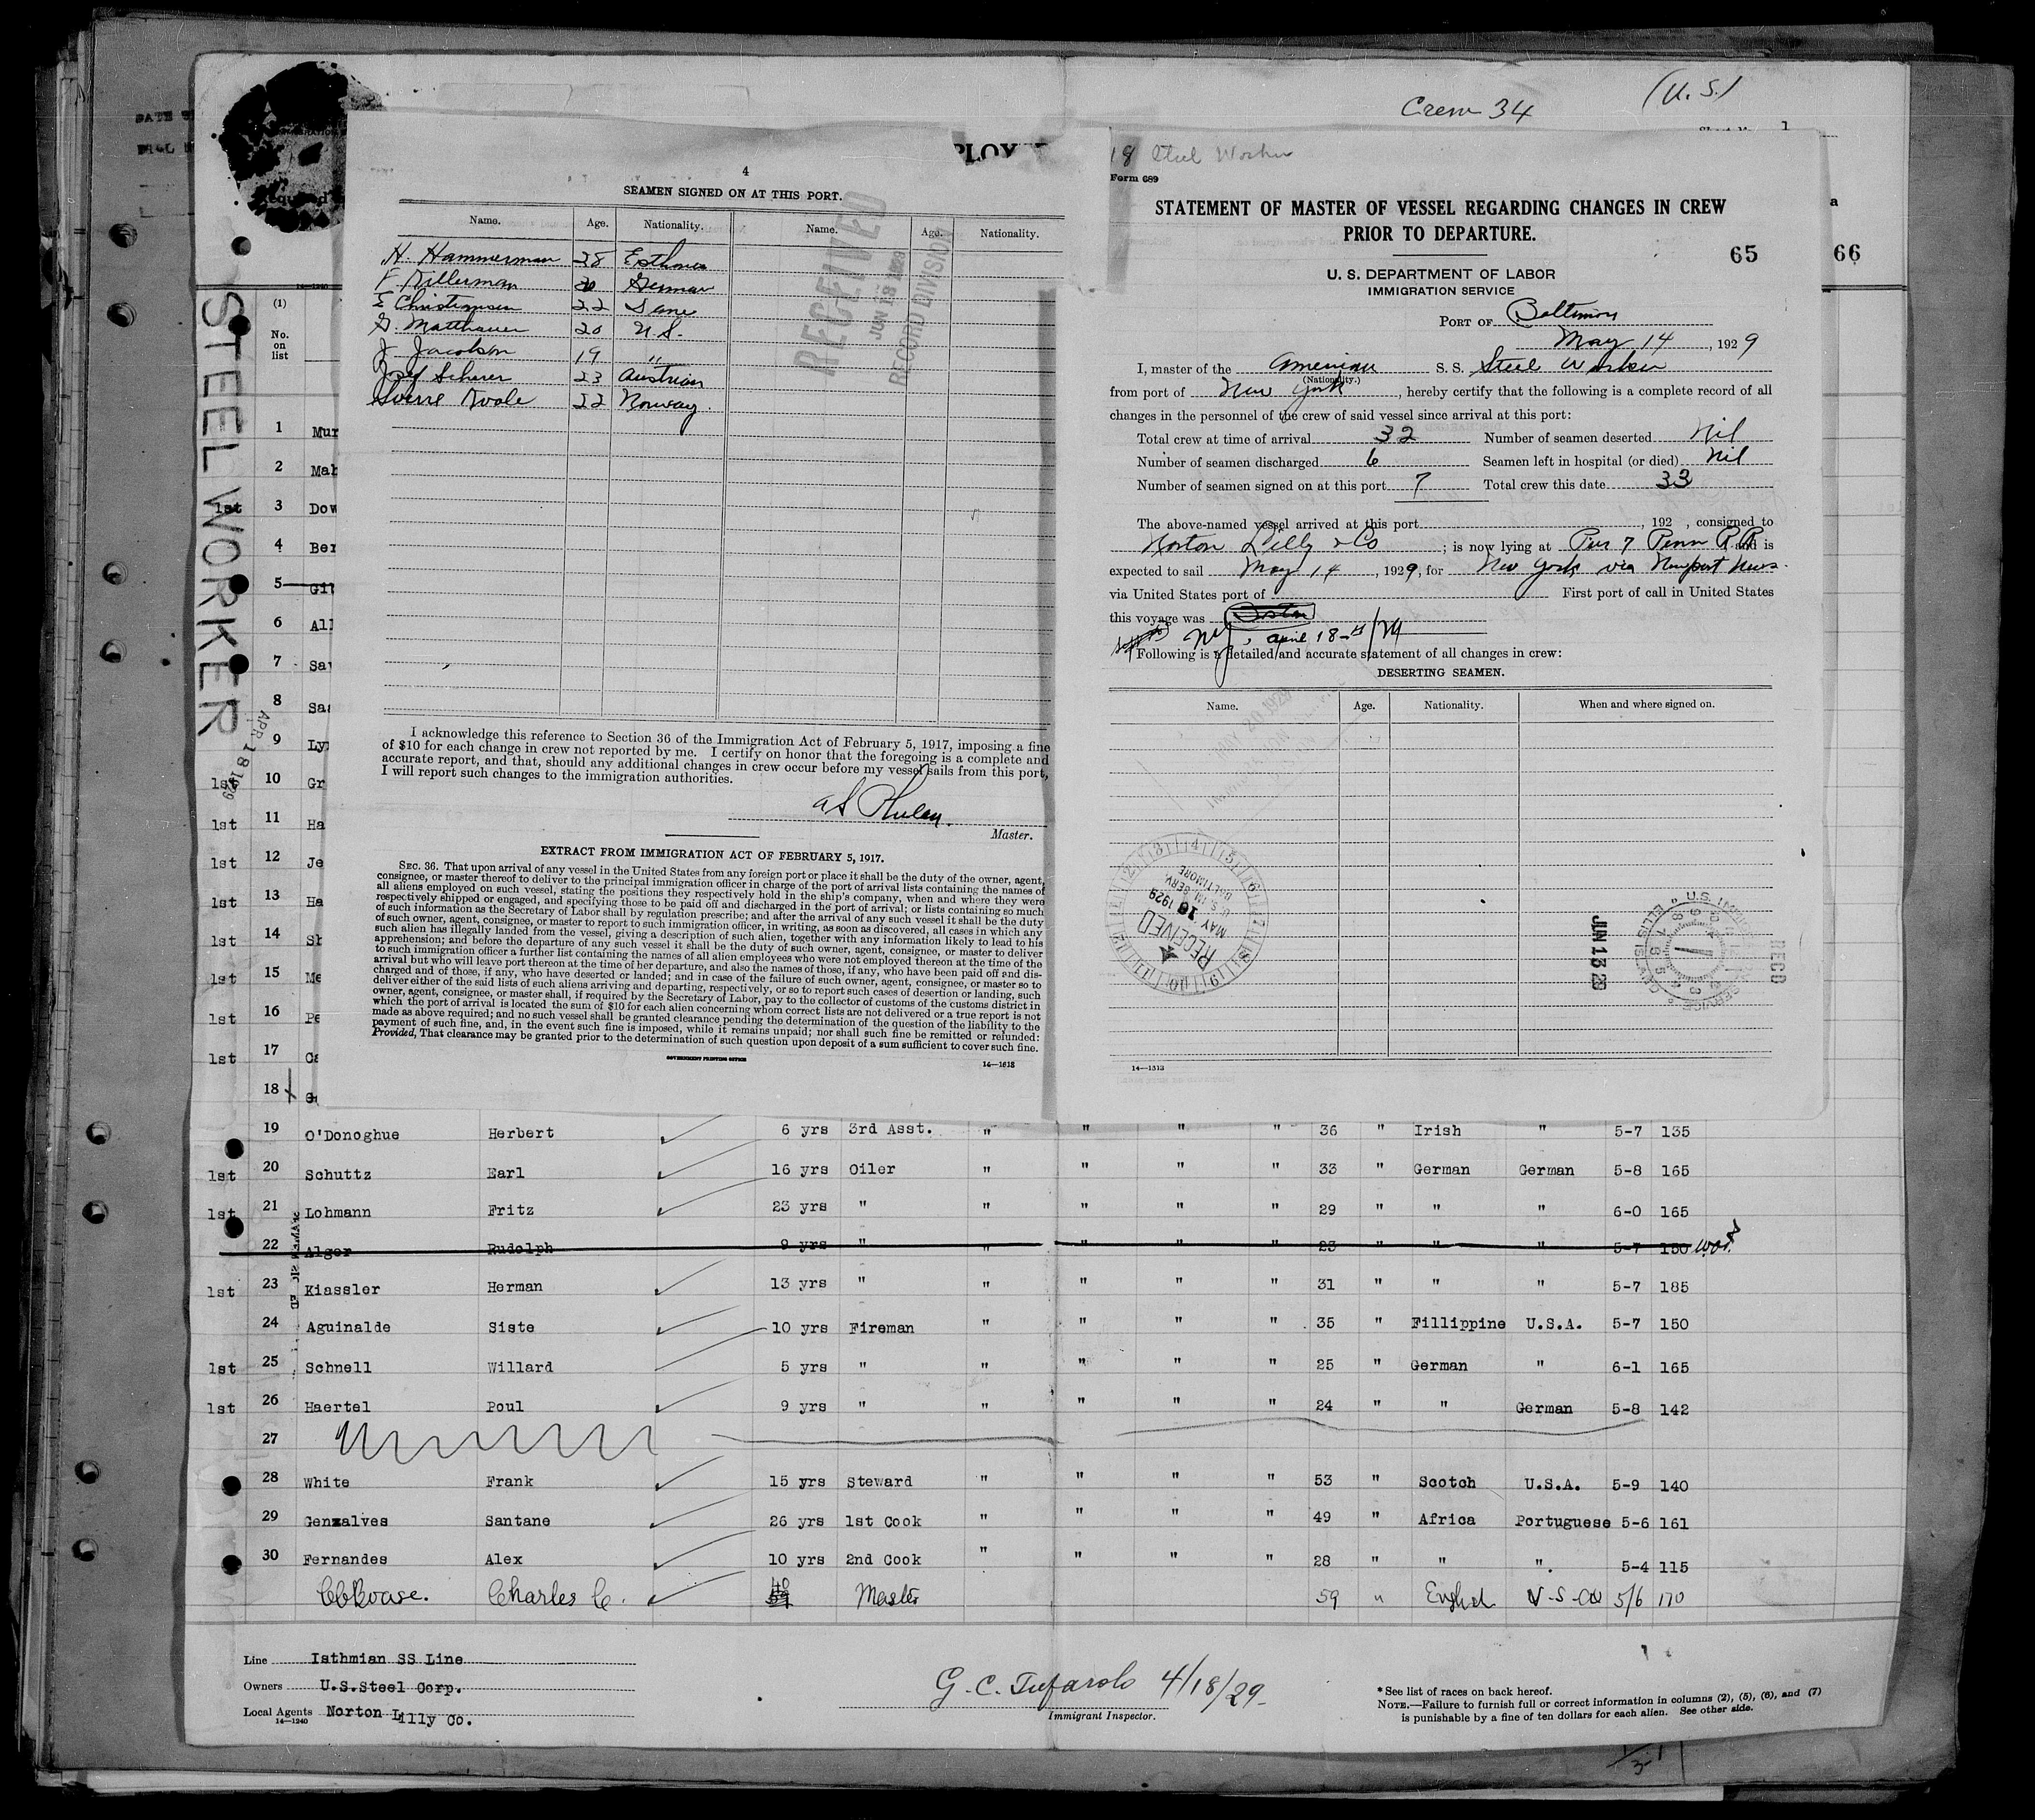 Crew 34
(U. S.)
1
DATE
4
SEAMEN SIGNED ON AT THIS PORT.
Name. Age. Nationality. Name. Age. Nationality.
H. Hammerman 28 Esthonia
F. Killerman German
E Christiansen 22 Dane
G. Matthauer 20 U.S.
J. Jacobson 19 "
Josef Scherer 23 Austrian
Sverre 22 Norway.
RECEIVED
JUN 18 1929
RECORD DIVISION
I acknowledge this reference to Section 36 of the Immigration Act of February 5, 1917, imposing a fine
of $10 for each change in crew not reported by me. I certify on honor that the foregoing is a complete and
accurate report, and that, should any additional changes in crew occur before my vessel sails from this port,
I will report such changes to the immigration authorities.
Master.
EXTRACT FROM IMMIGRATION ACT OF FEBRUARY 5, 1917.
SEC. 36. That upon arrival of any vessel in the United States from any foreign port or place it shall be the duty of the owner, agent,
consignee, or master thereof to deliver to the principal immigration officer in charge of the port of arrival lists containing the names of
all aliens employed on such vessel, stating the positions they respectively hold in the ship's company, when and where they were
respectively shipped or engaged, and specifying those to be paid off and discharged in the port of arrival; or lists containing so much
of such information as the Secretary of Labor shall by regulation prescribe; and after the arrival of any such vessel it shall be the duty
of such owner, agent, consignee, or master to report to such immigration officer, in writing, as soon as discovered, all cases in which any
such alien has illegally landed from the vessel, giving a description of such alien, together with any information likely to lead to his
apprehension; and before the departure of any such vessel it shall be the duty of such owner, agent, consignee, or master to deliver
to such immigration officer a further list containing the names of all alien employees who were not employed thereon at the time of the
arrival but who will leave port thereon at the time of her departure, and also the names of those, if any, who have been paid off and dis-
charged and of those, if any, who have deserted or landed; and in case of the failure of such owner, agent, consignee, or master so to
deliver either of the said lists of such aliens arriving and departing, respectively, or so to report such cases of desertion or landing, such
owner, agent, consignee, or master shall, if required by the Secretary of Labor, pay to the collector of customs of the customs district in
which the port of arrival is located the sum of $10 for each alien concerning whom correct lists are not delivered or a true report is not
made as above required; and no such vessel shall be granted clearance pending the determination of the question of the liability to the
payment of such fine, and, in the event such fine is imposed, while it remains unpaid; nor shall such fine be remitted or refunded:
Provided, That clearance may be granted prior to the determination of such question upon deposit of a sum sufficient to cover such fine.
GOVERNMENT PRINTING OFFICE
14—1313
18 Steel Worker
Form 689
STATEMENT OF MASTER OF VESSEL REGARDING CHANGES IN CREW
PRIOR TO DEPARTURE.
65
66
U. S. DEPARTMENT OF LABOR
IMMIGRATION SERVICE
PORT OF Baltimore
May 14, 1929
I, master of the American S. S. Steel Worker
(Nationality.)
from port of New York, hereby certify that the following is a complete record of all
changes in the personnel of the crew of said vessel since arrival at this port:
Total crew at time of arrival 32 Number of seamen deserted Nil
Number of seamen discharged 6 Seamen left in hospital (or died) Nil
Number of seamen signed on at this port 7 Total crew this date 33
The above-named vessel arrived at this port , 192 , consigned to
Norton Lilly & Co; is now lying at Pier 7 Penn R R and is
expected to sail May 14, 1929, for New York via Newport News.
via United States port of First port of call in United States
this voyage was Boston
NY, april 18-19/29
Following is a detailed and accurate statement of all changes in crew:
DESERTING SEAMEN.
Name. Age. Nationality. When and where signed on.
MAY 20 1929
RECEIVED
MAY 16 1929
U. S. IM. SERV.
BALTIMORE
JUN 13 29
RECD
14—1313
STEEL WORKER
APR 18 1929
14—1240
(1)
No.
on
list
1 Mur
2 Mah
1st 3 Dow
4 Ber
5 Git
6 All
7 Sav
8 Sas
9 Ly
1st 10 Gr
1st 11 Ha
1st 12 Je
1st 13 Ha
1st 14 Sh
1st 15 Me
1st 16 Pe
1st 17 Ca
18
19 O'Donoghue Herbert 6 yrs 3rd Asst. " " " " 36 " Irish " 5-7 135
1st 20 Schuttz Earl 16 yrs Oiler " " " " 33 " German German 5-8 165
1st 21 Lohmann Fritz 23 yrs " " " " " 29 " " " 6-0 165
22 Alger Rudolph 9 yrs " " " " " 23 " " " 5-7 150
1st 23 Kiassler Herman 13 yrs " " " " " 31 " " " 5-7 185
24 Aguinalde Siste 10 yrs Fireman " " " " 35 " Fillippine U.S.A. 5-7 150
1st 25 Schnell Willard 5 yrs " " " " " 25 " German " 6-1 165
1st 26 Haertel Poul 9 yrs " " " " " 24 " " German 5-8 142
27
28 White Frank 15 yrs Steward " " " " 53 " Scotch U.S.A. 5-9 140
29 Genzalves Santane 26 yrs 1st Cook " " " " 49 " Africa Portuguese 5-6 161
30 Fernandes Alex 10 yrs 2nd Cook " " " " 28 " " " 5-4 115
Charles C. 40 Master 59 " English U-S-A 5/6 170
Line Isthmian SS Line
Owners U.S.Steel Corp.
Local Agents Norton Lilly Co.
14—1240
G. C. Tufarolo 4/18/29
Immigrant Inspector.
* See list of races on back hereof.
NOTE.—Failure to furnish full or correct information in columns (2), (5), (6), and (7)
is punishable by a fine of ten dollars for each alien. See other side.